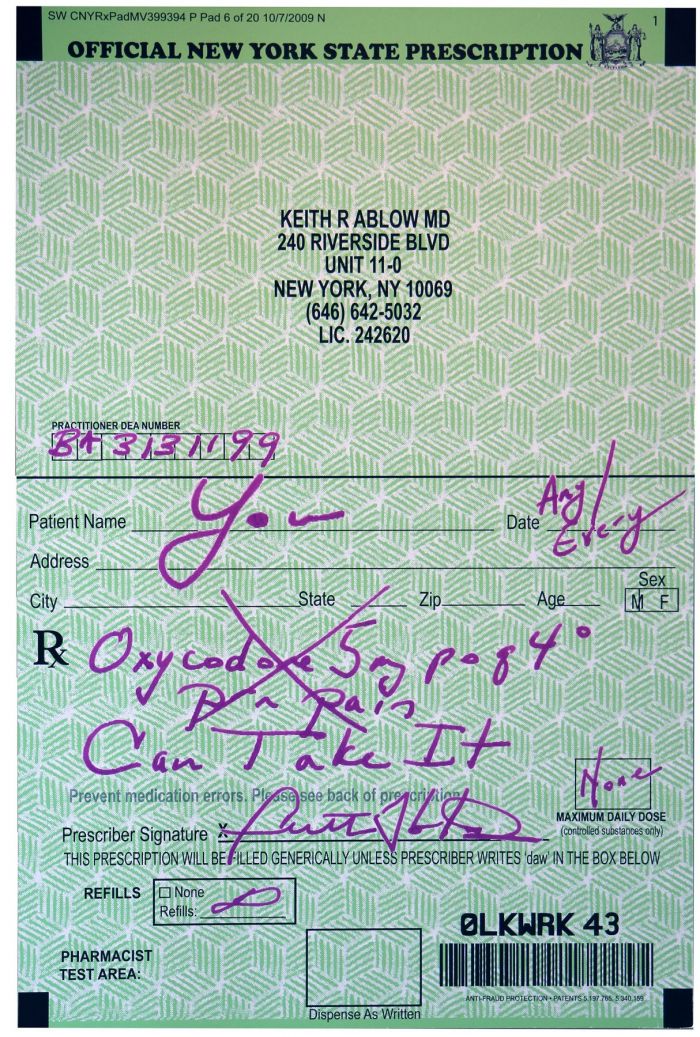 SW CNYRxPadMV399394 P Pad 6 of 20 10/7/2009 N
1
OFFICIAL NEW YORK STATE PRESCRIPTION
KEITH R ABLOW MD
240 RIVERSIDE BLVD
UNIT 11-0
NEW YORK, NY 10069
(646) 642-5032
LIC. 242620
PRACTITIONER DEA NUMBER
BA3131199
Patient Name You Date Any/Every
Address
City State Zip Age Sex
M F
Rx Oxycodone 5mg po q 4°
prn pain
Can Take It
None
Prevent medication errors. Please see back of prescription
MAXIMUM DAILY DOSE
(controlled substances only)
Prescriber Signature X
THIS PRESCRIPTION WILL BE FILLED GENERICALLY UNLESS PRESCRIBER WRITES 'daw' IN THE BOX BELOW
REFILLS
None
Refills: ∞
0LKWRK 43
PHARMACIST
TEST AREA:
ANTI-FRAUD PROTECTION • PATENTS 5,197,765, 5,340,159
Dispense As Written